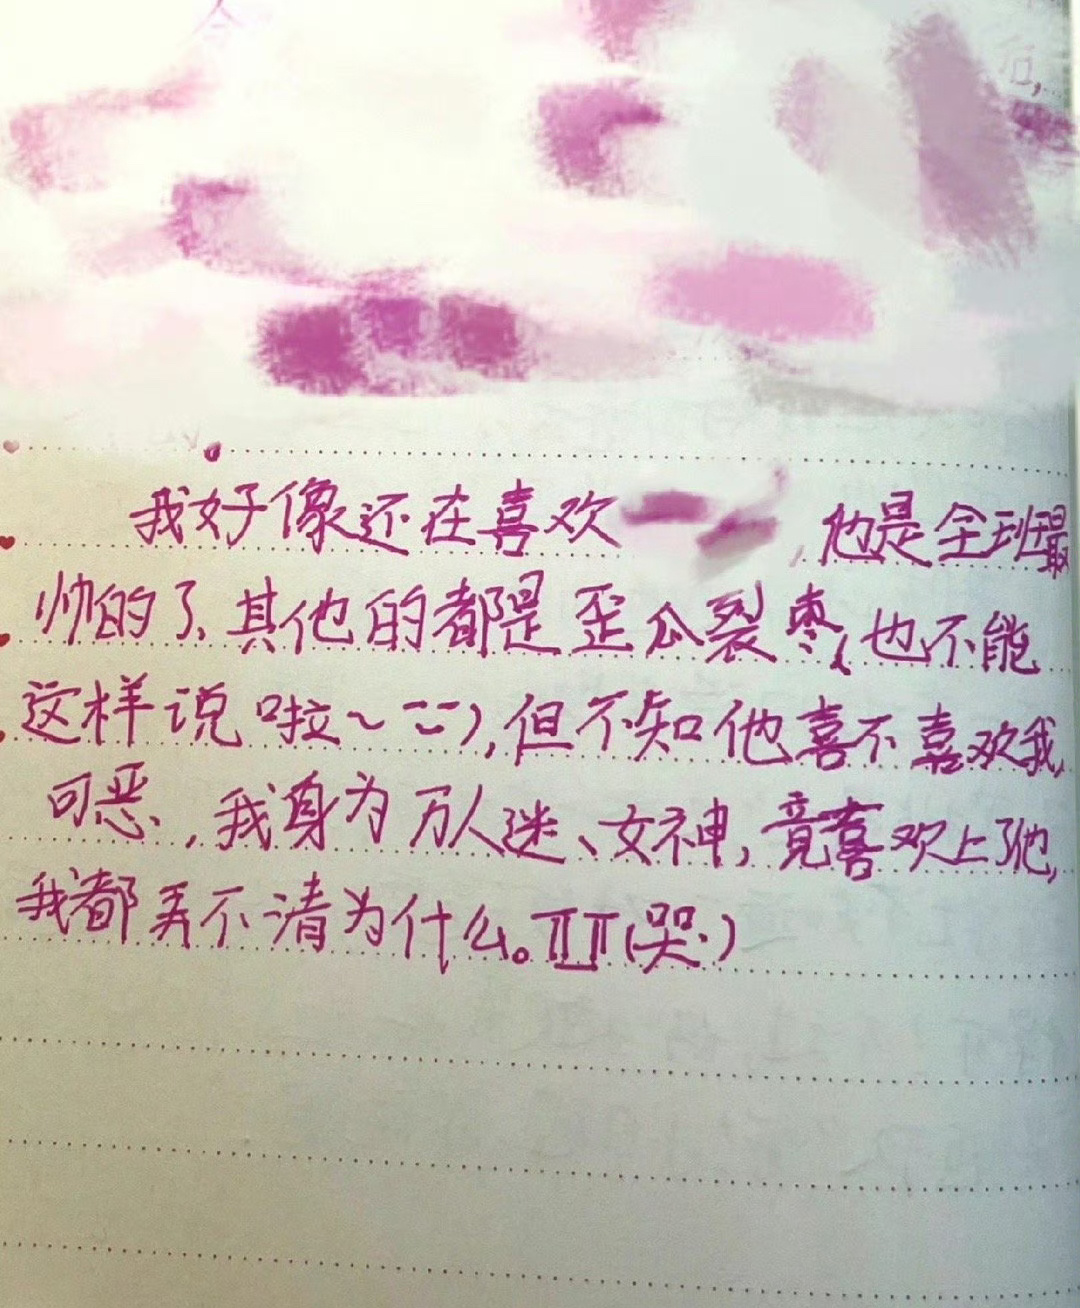 我好像还在喜欢 ,他是全班最
帅的了、其他的都是歪瓜裂枣(也不能
这样说啦～--),但不知他喜不喜欢我,
可恶,我身为万人迷、女神,竟喜欢上了他,
我都弄不清为什么。TT(哭)